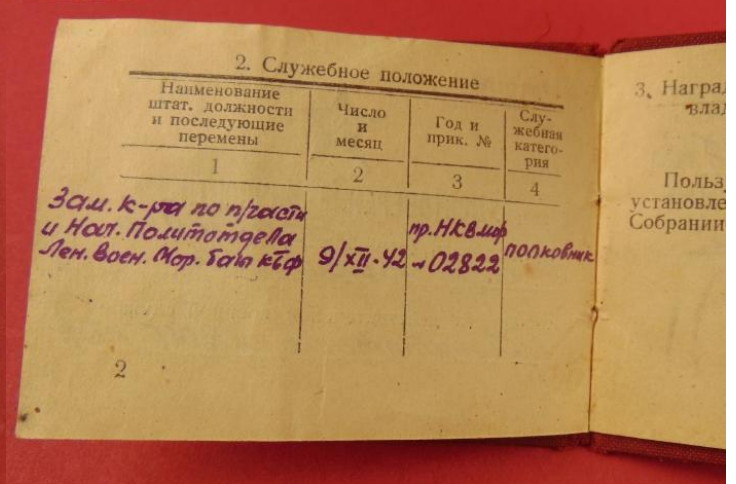 2. Служебное положение
Наименование
штат. должности
и последующие
перемены
Число
и
месяц
Год и
прик. №
Слу-
жебная
катего-
рия
1
2
3
4
Зам. к-ра по п/части
и Нач. Политотдела
Лен. Воен. Мор. баз КБФ
9/XII-42
пр. НКВмф
02822
полковник
2
3. Наград
влад
Польз
установле
Собрании